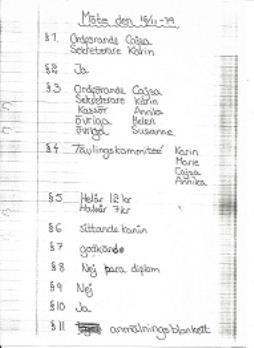 Möte den 15/11-79
§1. Ordförande Cajsa
Sekreterare Karin
§2 Ja
§3 Ordförande Cajsa
Sekreterare Karin
Kassör Annika
övriga Helen
övriga Susanne
§4 Tävlingskommiteé Karin
Marie
Cajsa
Annika
§5 Helår 12 kr
Halvår 7 kr
§6 sittande kanin
§7 godkände
§8 Nej bara diplom
§9 Nej
§10 Ja
§11 anmälningsblankett